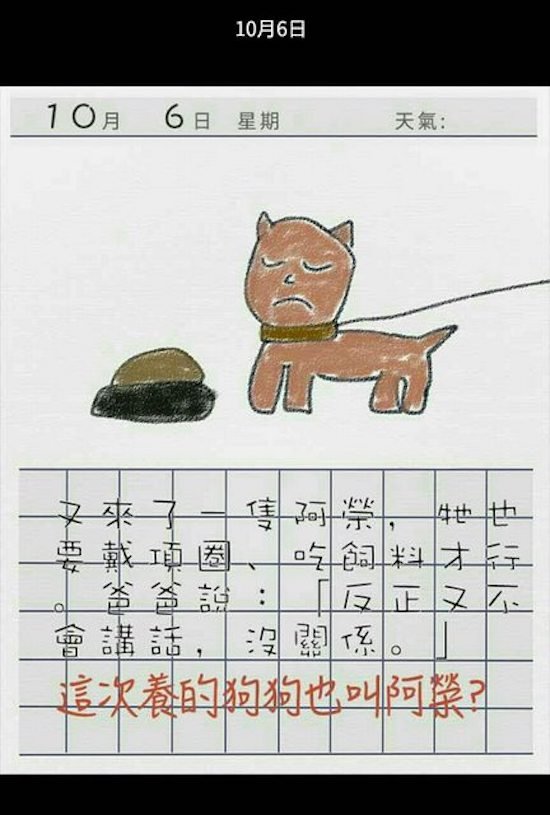 10月6日
10月 6日 星期 天氣:
又來了一隻阿榮，牠也
要戴項圈、吃飼料才行
。爸爸說：「反正又不
會講話，沒關係。」
這次養的狗狗也叫阿榮?